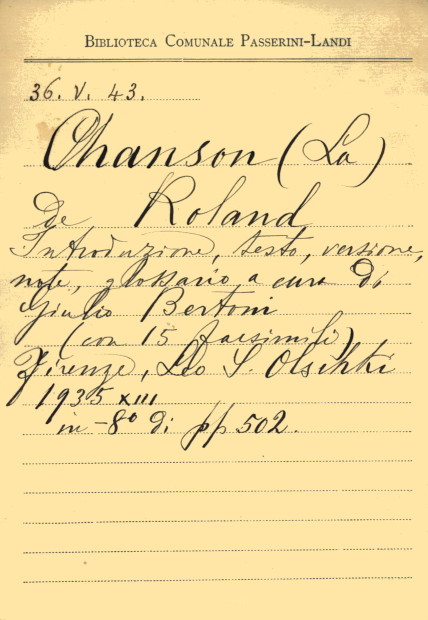 BIBLIOTECA COMUNALE PASSERINI-LANDI
36. V. 43.
Chanson (La)
de Roland
Introduzione, testo, versione,
note, glossario a cura di
Giulio Bertoni
(con 15 facsimili)
Firenze, Leo S. Olschki
1935 XIII
in-8° di pp 502.